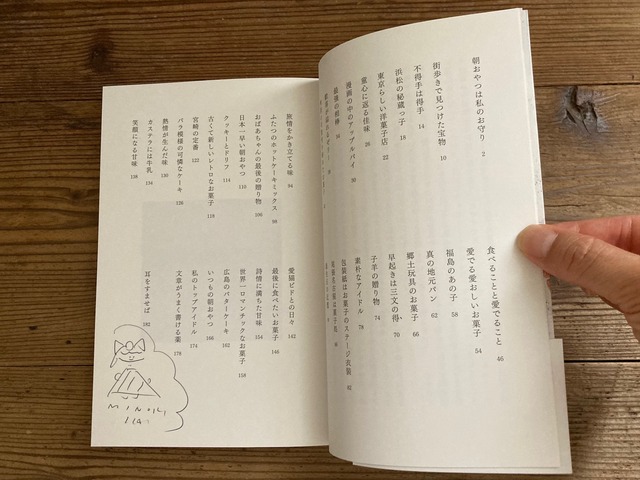 朝おやつは私のお守り 2
街歩きで見つけた宝物 10
不得手は得手 14
浜松の秘蔵っ子 18
東京らしい洋菓子店 22
童心に返る佳味 26
漫画の中のアップルパイ 30
最強の相棒 34
食べることと愛でること 46
愛でる愛おしいお菓子 54
福島のあの子 58
真の地元パン 62
郷土玩具のお菓子 66
早起きは三文の得 70
子羊の贈り物 74
素朴なアイドル 78
包装紙はお菓子のステージ衣装 82
旅情をかき立てる味 94
ふたつのホットケーキミックス 98
おばあちゃんの最後の贈り物 106
日本一早い朝おやつ 110
クッキーとドリフ 114
古くて新しいレトロなお菓子 118
宮崎の定番 122
バラ模様の可憐なケーキ 126
熱情が生んだ味 130
カステラには牛乳 134
笑顔になる甘味 138
愛猫ピドとの日々 142
最後に食べたいお菓子 146
詩情に満ちた甘味 154
世界一ロマンチックなお菓子 158
広島のバターケーキ 162
いつもの朝おやつ 166
私のトップアイドル 174
文章がうまく書ける薬 178
耳をすませば 182